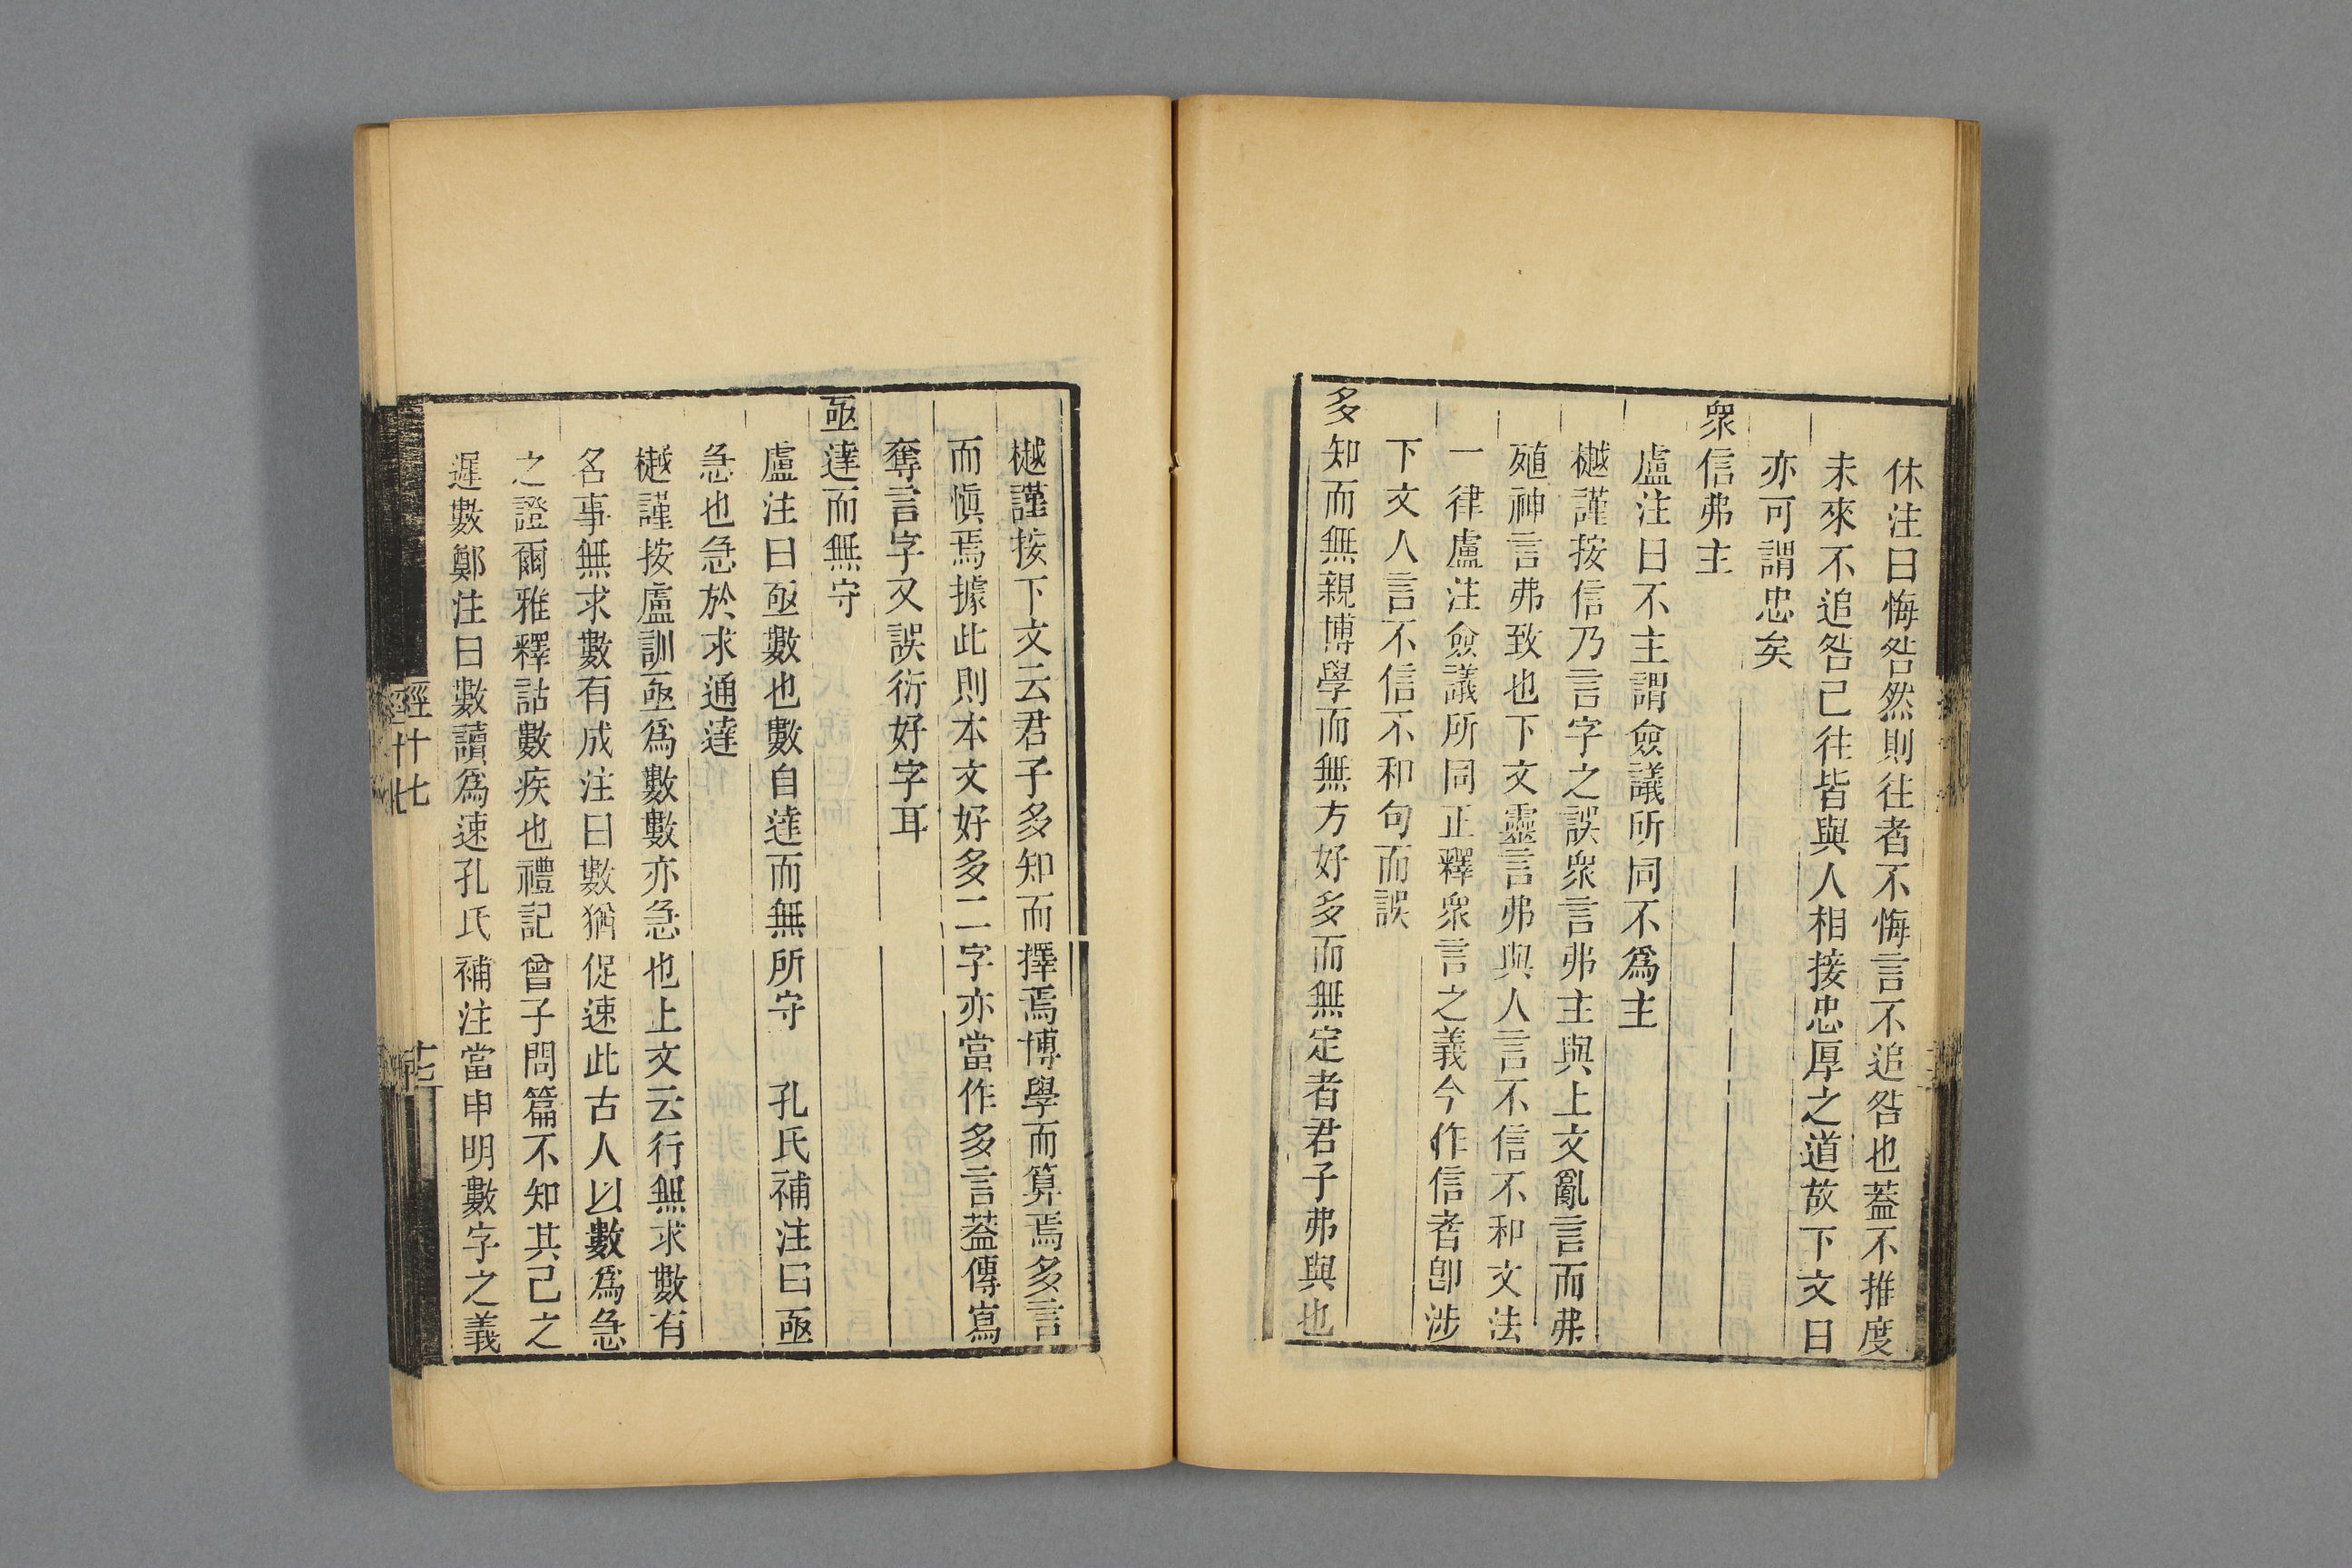 休注曰悔咎然則往者不悔言不追咎也蓋不推度
未來不追咎己往皆與人相接忠厚之道故下文曰
亦可謂忠矣
衆信弗主
盧注曰不主謂僉議所同不爲主
樾謹按信乃言字之誤衆言弗主與上文亂言而弗
殖神言弗致也下文靈言弗與人言不信不和文法
一律盧注僉議所同正釋衆言之義今作信者卽涉
下文人言不信不和句而誤
多知而無親博學而無方好多而無定者君子弗與也
樾謹按下文云君子多知而擇焉博學而算焉多言
而愼焉據此則本文好多二字亦當作多言蓋傳寫
奪言字又誤衍好字耳
亟達而無守
盧注曰亟數也數自達而無所守 孔氏補注曰亟
急也急於求通達
樾謹按盧訓亟爲數數亦急也上文云行無求數有
名事無求數有成注曰數猶促速此古人以數爲急
之證爾雅釋詁數疾也禮記曾子問篇不知其己之
遲數鄭注曰數讀爲速孔氏補注當申明數字之義
經十七
十七